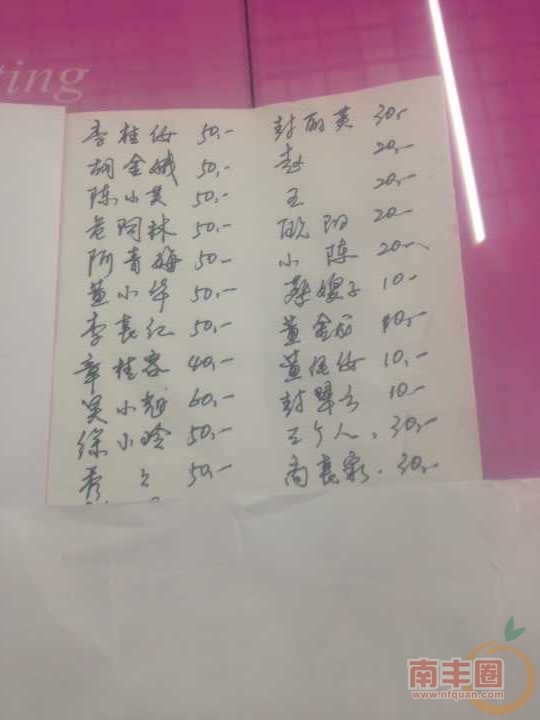 ting
李桂仙 50,-
胡金娥 50,-
陈小英 50,-
危阿妹 50,-
阿青梅 50,-
黄小华 50,-
李長红 50,-
章桂容 40,-
吴小 60,-
徐小玲 50,-
秀 50,-
封丽英 30,-
赵 20,-
王 20,-
欧阳 20-
小陈 20-
蔡嫂子 10-
黄金 10,-
黄 10,-
封翠 10-
三个人, 30,-
尚長 30,-
南丰圈
www.nfquan.com